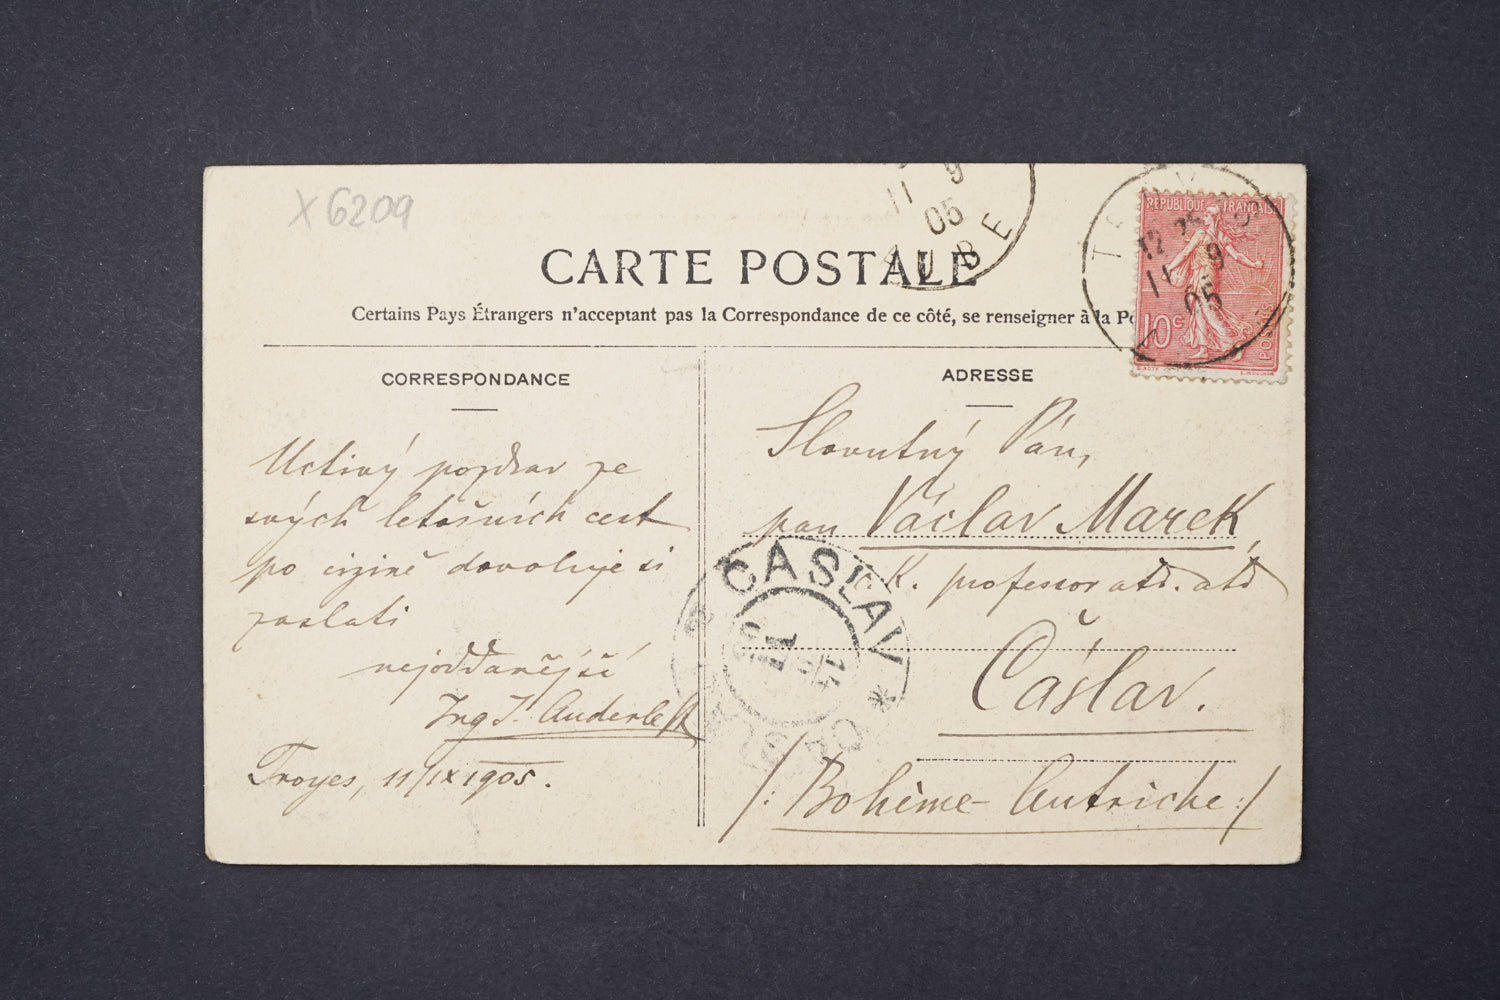 X 6209
11 9
05
AUBE
CARTE POSTALE
Certains Pays Étrangers n'acceptant pas la Correspondance de ce côté, se renseigner à la Po
REPUBLIQUE FRANÇAISE
10c
POSTES
12 25
11 9
05
CORRESPONDANCE
Uctivý pozdrav ze
svých letošních cest
po cizině dovoluje si
zaslati
nejoddanější
Ing J.
Troyes, 11/IX 1905.
ADRESSE
Slovutný Pán,
pan Václav Marek,
c. K. professor atd. atd
Čáslav.
/: Bohème - Autriche :/
ČÁSLAV